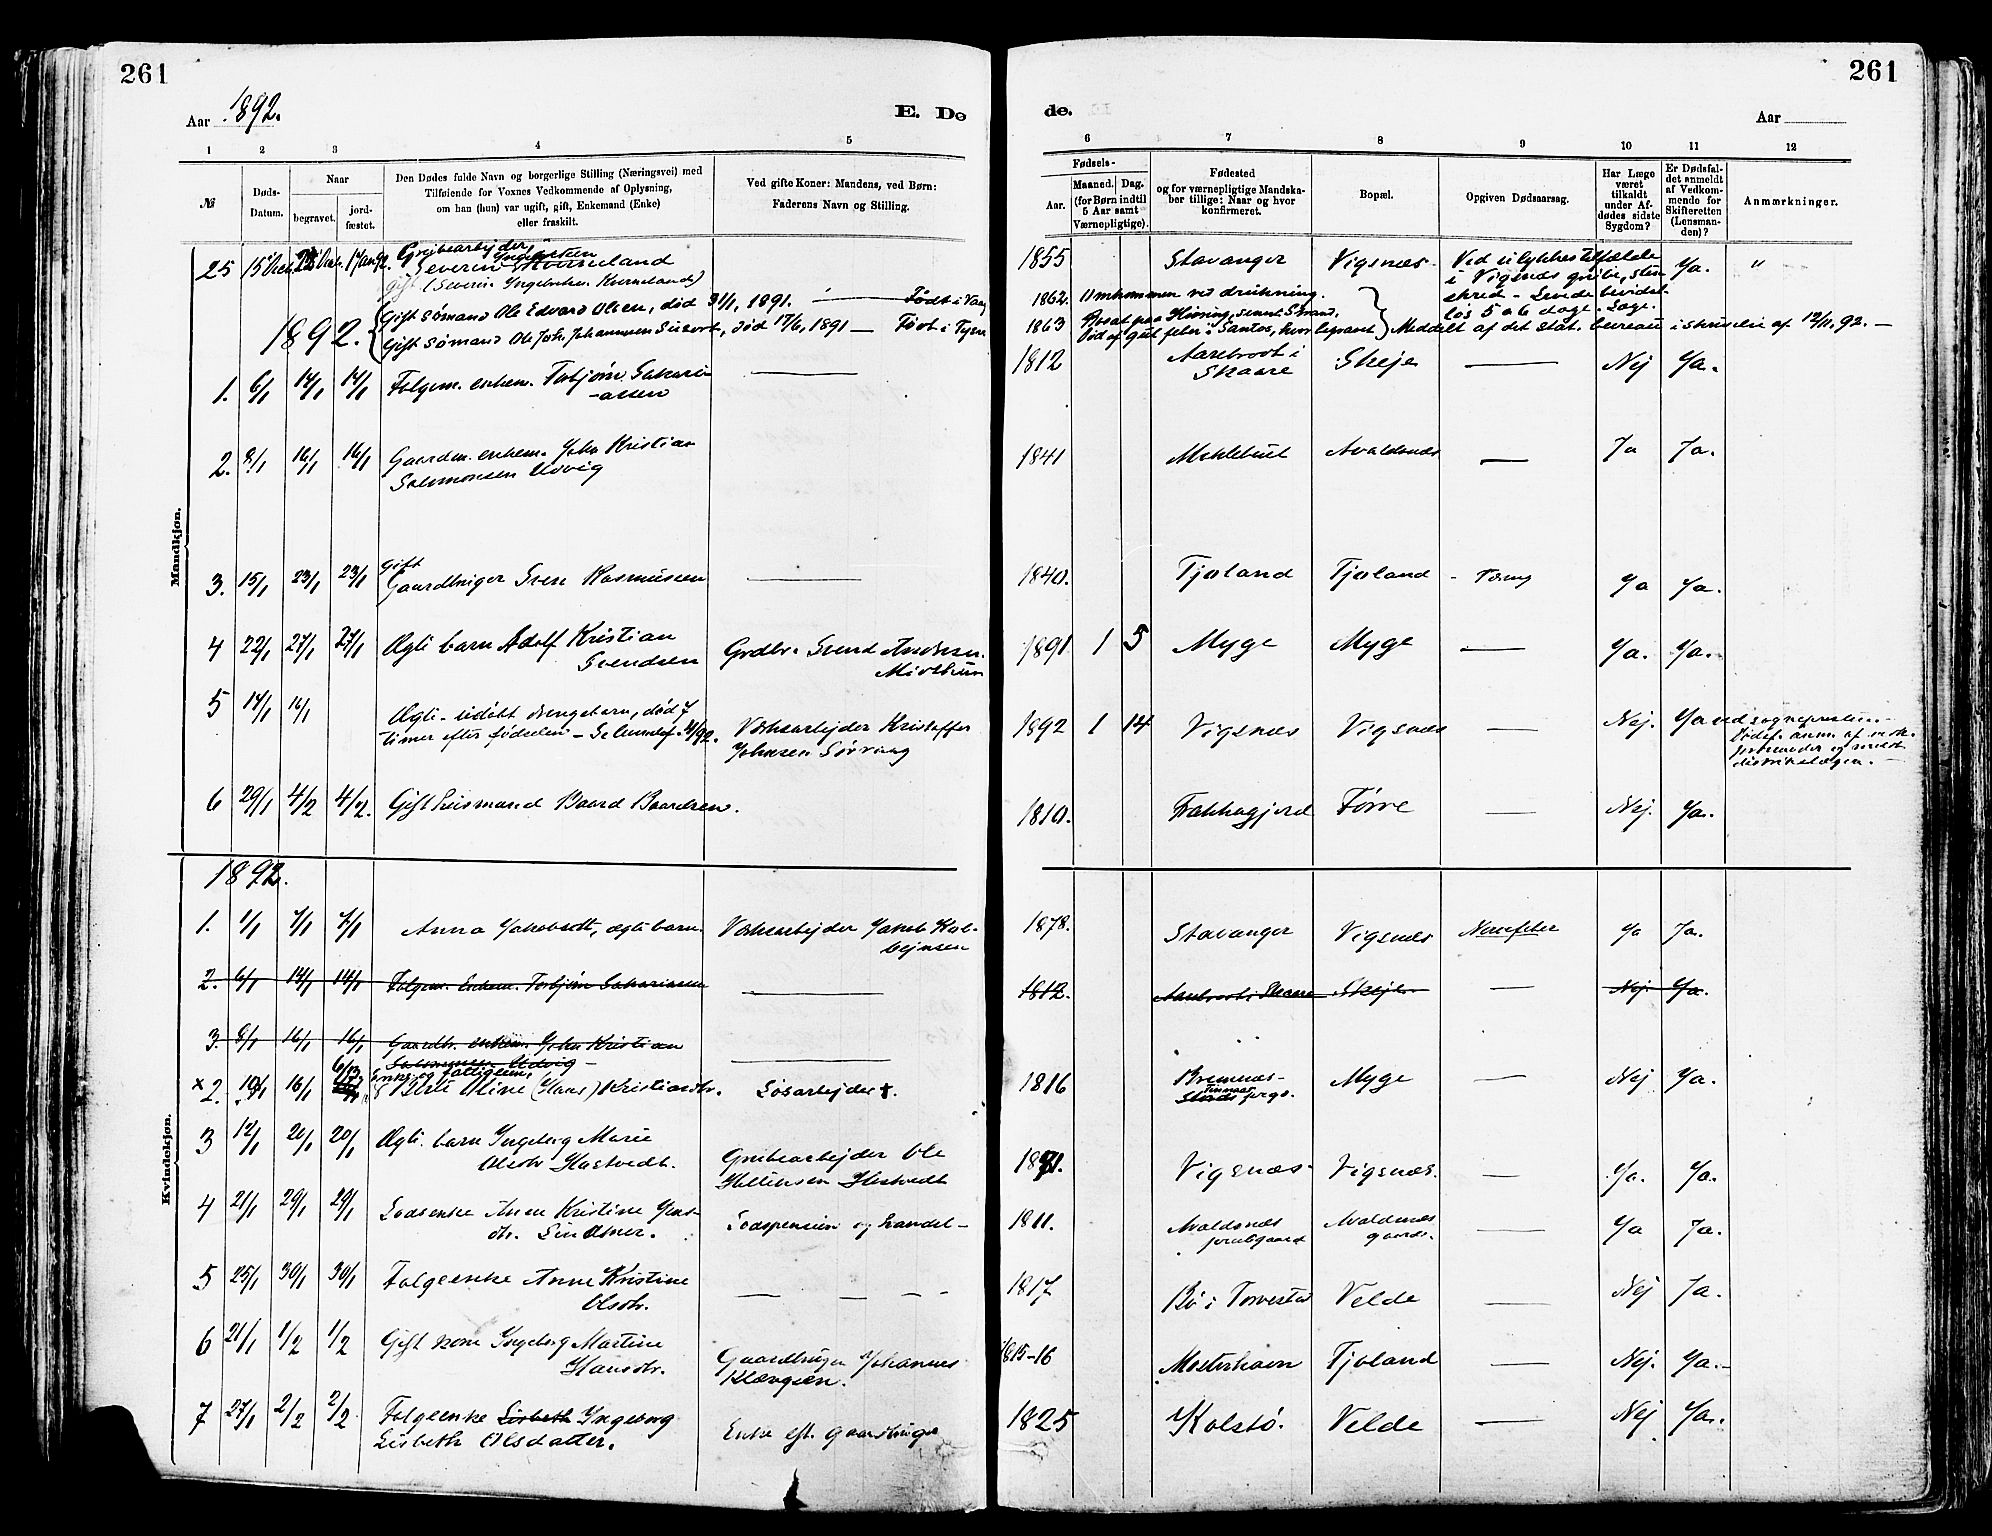 261
261
Aar 1892.
E. Dø
de.
Aar
1 2 3 4 5
6 7 8 9 10 11 12
№
Døds-
Datum.
Naar
begravet.
jord-
fæstet.
Den Dødes fulde Navn og borgerlige Stilling (Næringsvei) med
Tilføiende for Voxnes Vedkommende af Oplysning,
om han (hun) var ugift, gift, Enkemand (Enke)
eller fraskilt.
Ved gifte Koner: Mandens, ved Børn:
Faderens Navn og Stilling.
Fødsels-
Aar.
Maaned. Dag.
(for Børn indtil
5 Aar samt
Værnepligtige).
Fødested
og for værnepligtige Mandska-
ber tillige: Naar og hvor
konfirmeret.
Bopæl.
Opgiven Dødsaarsag.
Har Læge
været
tilkaldt
under Af-
dødes sidste
Sygdom?
Er Dødsfal-
det anmeldt
af Vedkom-
mende for
Skifteretten
(Lensman-
den)?
Anmærkninger.
Mandkjøn.
25 Grubearbejder
Severin Kverneland
gift (Severin Ingebrethsen Kvernelands)
1855 Stavanger Vigsnæs. Ved ulykkestilfælde
i Vigsnæs grube, sten
skred - Levede bevidst-
løs 5 a 6 dage. Ja. "
Gift sømand Ole Edvard Olsen, død 31/1, 1891. — Født i
1862. Omkommen ved drukning.
1892. Gift sømand Ole Joh. Johannesen, død 17/6, 1891 — Født i
1863 Død af gul feber i Santos, hvor begravet } Meddelt af det stat. bureau i skrivelse af 12/11. 92. —
1. 6/1 14/1 14/1 Folgem. enkem. Torbjørn Sakari-
assen — 1812 i
Skaare Skeje — Nej Ja.
2. 8/1 16/1 16/1 Gaardm. enkem. John Kristian
Salomonsen Udvig 1841 Meklebust Avaldsnæs — Ja Ja.
3. 15/1 23/1 23/1 gift
Gaardbruger Sven Rasmussen — 1840. Tjøland Tjøland - Tæring Ja Ja.
4 22/1 27/1 27/1 Ægte barn Adolf Kristian
Svendsen Grdbr. Svend Andersen
1891 1 5 Myge Myge — Ja. Ja.
5 14/1 16/1 Ægte - udøbt drengebarn, død 7
timer efter fødselen - Værksarbejder Kristoffer
Johnsen Sørvaag 1892 1 14 Vigsnæs Vigsnæs — Nej. Ja ved sognepresten -
Dødsf. anm. af
distriktslægen. —
6 29/1 4/2 4/2. Gift Huusmand Baard Baardsen. 1810. Frakkagjerd Førre — Nej. Ja.
1892.
Kvindekjøn.
1. 1/1 7/1 7/1 Anna Jakobsdtr, ægte barn. Værksarbejder Jakob Kol-
bejnsen 1878. Stavanger Vigsnæs Nervefeber Ja Ja.
2. 6/1 14/1 14/1 Folgem. Enkem. Torbjørn Sakariassen — 1812. Skaare Skeje — Nej. Ja.
3. 8/1 16/1 16/1 Gaardbr. enkem. John Kristian
Salomonsen Udvig — —
× 2. 10/1 16/1 Enke og fattiglem,
Berte Oline (Hans) Kristiansdtr. Løsarbejder †. 1816 Bremnæs-
Finnaas
Stords prgs. Myge — Nej Ja.
3 12/1 20/1 20/1 Ægte. barn Ingeborg Marie
Olsdtr Hestvedt. Grubearbejder Ole
Hestvedt 1891. Vigsnæs- Vigsnæs. — Ja. Ja.
4 21/1 29/1 29/1 Lodsenke Anne Kristine Jens-
dtr. Lindtner. Lodspension og handel - 1811. Avaldsnæs
prestegaard Avaldsnæs
gaard. — Ja Ja.
5 25/1 30/1 30/1 Folgeenke Anne Kristine
Olsdtr. — — — - 1817 Bø i Torvestad Velde — Nej Ja.
6 21/1 1/2 1/2 Gift kone Ingeborg Martine
Hansdtr. Gaardbruger Johannes
1815-16 Mosterhavn Tjøland — Nej. Ja.-
7 27/1 2/2 2/2 Folgeenke Lisbeth Ingeborg
Lisbeth Olsdatter. Enke eft. gaardbruger 1825 Kolstø. Velde — Nej Ja.